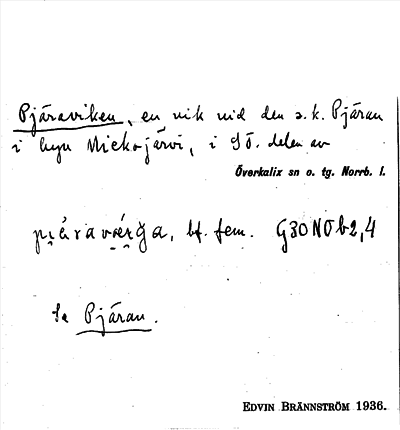 Pjäraviken, en vik vid den s.k. Pjäran
i byn Miekojärvi, i SÖ. delen av
Överkalix sn o. tg. Norrb. l.
bf. fem. G30NÖb2,4
Se Pjäran.
EDVIN BRÄNNSTRÖM 1936.